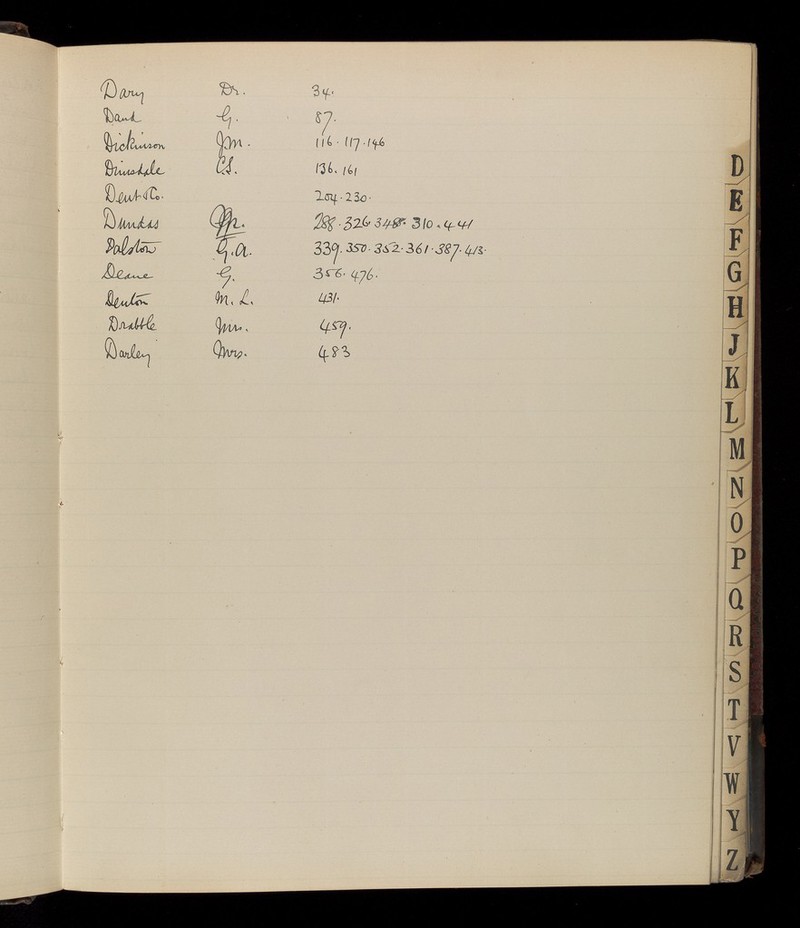 Dary Dr. 34.
Daud G. 87.
Dickinson Jm. 116. 117. 146
Dimsdale C.S. 136. 161
Dent & Co. 204. 230.
Dundas 288. 326. 348. 310. 441
Dalston G.A. 339. 350. 352. 361. 387. 413.
Deane G. 356. 476.
Denton M. L. 431.
Drabble Mrs. 459.
Darley Mrs. 483
D
E
F
G
H
J
K
L
M
N
O
P
Q
R
S
T
V
W
Y
Z